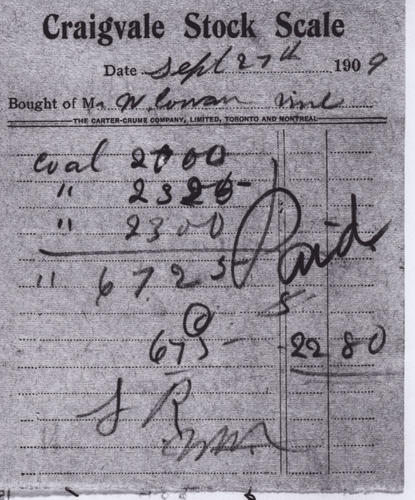 Craigvale Stock Scale
Date Sept 27th 1909
Bought of Mr W. Cowan
THE CARTER-CRUME COMPANY, LIMITED, TORONTO AND MONTREAL
coal 2100
" 2325
" 2300
" 6725
Paid
@
675 22 80